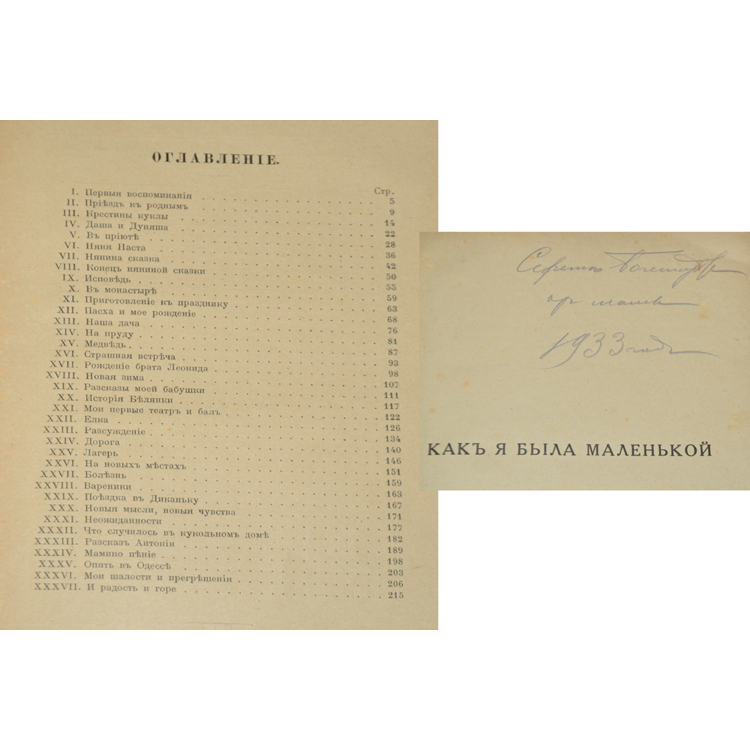 ОГЛАВЛЕНІЕ.
Стр.
I. Первыя воспоминанія 5
II. Пріѣздъ къ роднымъ 9
III. Крестины куклы 14
IV. Даша и Дуняша 22
V. Въ пріютѣ 28
VI. Няня Наста 36
VII. Нянина сказка 42
VIII. Конецъ няниной сказки 50
IX. Исповѣдь 55
X. Въ монастырѣ 59
XI. Приготовленіе къ празднику 63
XII. Пасха и мое рожденіе 68
XIII. Наша дача 76
XIV. На пруду 81
XV. Медвѣдь 87
XVI. Страшная встрѣча 93
XVII. Рожденіе брата Леонида 98
XVIII. Новая зима 107
XIX. Разсказы моей бабушки 111
XX. Исторія Бѣлянки 117
XXI. Мои первые театръ и балъ 122
XXII. Елка 126
XXIII. Разсужденіе 134
XXIV. Дорога 140
XXV. Лагерь 146
XXVI. На новыхъ мѣстахъ 151
XXVII. Болѣзнь 159
XXVIII. Вареники 163
XXIX. Поѣздка въ Диканьку 167
XXX. Новыя мысли, новыя чувства 171
XXXI. Неожиданности 177
XXXII. Что случилось въ кукольномъ домѣ 182
XXXIII. Разсказъ Антоніи 189
XXXIV. Мамино пѣніе 198
XXXV. Опять въ Одессѣ 203
XXXVI. Мои шалости и прегрѣшенія 206
XXXVII. И радость и горе 215
1933 года
КАКЪ Я БЫЛА МАЛЕНЬКОЙ